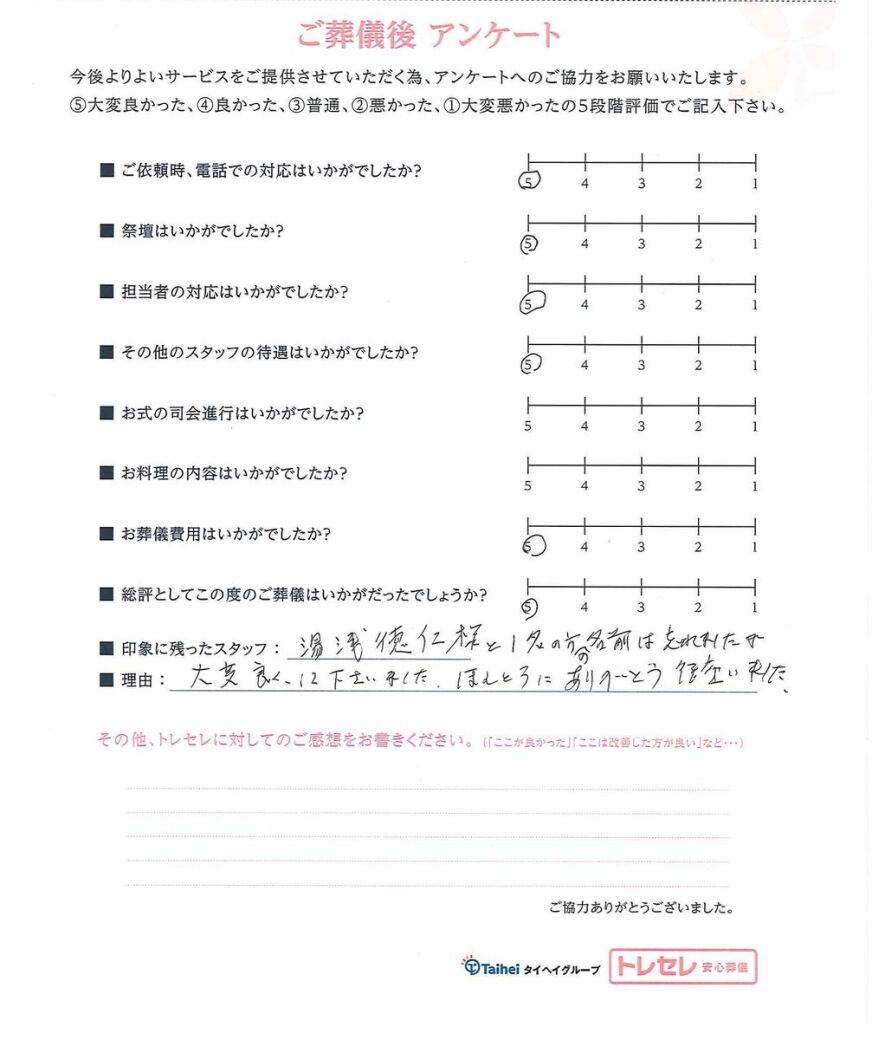 ご葬儀後 アンケート
今後よりよいサービスをご提供させていただく為、アンケートへのご協力をお願いいたします。
⑤大変良かった、④良かった、③普通、②悪かった、①大変悪かったの5段階評価でご記入下さい。
■ ご依頼時、電話での対応はいかがでしたか?
5 4 3 2 1
■ 祭壇はいかがでしたか?
5 4 3 2 1
■ 担当者の対応はいかがでしたか?
5 4 3 2 1
■ その他のスタッフの待遇はいかがでしたか?
5 4 3 2 1
■ お式の司会進行はいかがでしたか?
5 4 3 2 1
■ お料理の内容はいかがでしたか?
5 4 3 2 1
■ お葬儀費用はいかがでしたか?
5 4 3 2 1
■ 総評としてこの度のご葬儀はいかがだったでしょうか?
5 4 3 2 1
■ 印象に残ったスタッフ: 湯浅徳仁様と1名の方の名前は忘れましたが
■ 理由: 大変良くして下さいました。ほんとうにありがとう御座いました。
その他、トレセレに対してのご感想をお書きください。(「ここが良かった」「ここは改善した方が良い」など・・・)
ご協力ありがとうございました。
Taihei タイヘイグループ トレセレ 安心葬儀